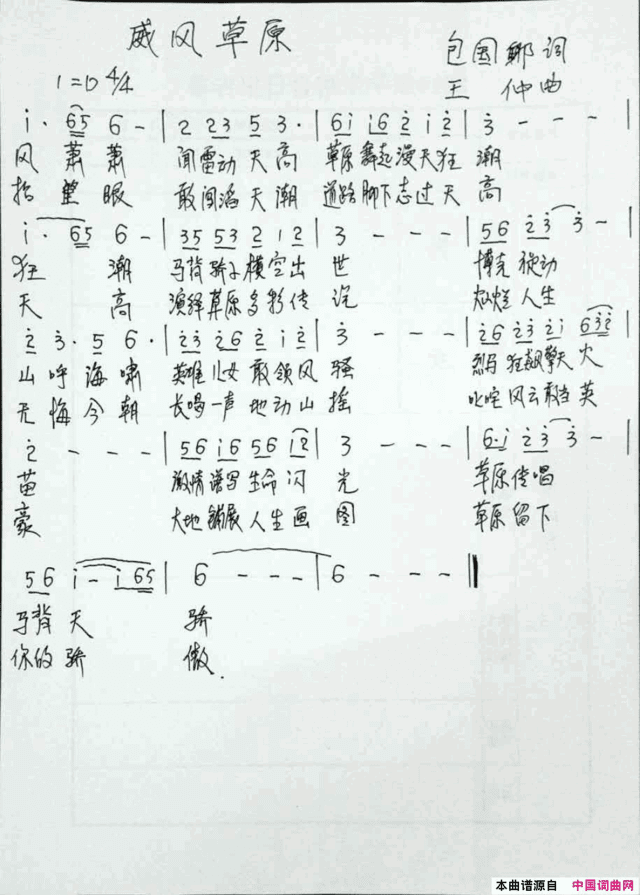 威风草原
包国郦词
1=D 4/4
王 仲曲
i· 65 6 - | 2 23 5 3· | 6i i6 2 i2 | 3 - - - |
风 萧萧 闻雷动天高 草原舞起漫天狂 潮
抬望眼 敢闯滔天潮 道路脚下志过天 高
i· 65 6 - | 35 53 2 12 | 3 - - - | 56 23 3 - |
狂 潮 马背骄子横空出 世 博克 驰动
天 高 演绎草原多彩传 说 灿烂人生
2 3· 5 6· | 23 26 2 i2 | 3 - - - | 26 23 2i 632 |
山呼海啸 英雄儿女敢领风 骚 烈马狂飙擎天火
无悔今朝 长唱一声地动山 摇 叱咤风云敢当英
2 - - - | 56 i6 56 i2 | 3 - - - | 6·i 23 3 - |
苗 激情谱写生命闪 光 草原传唱
豪 大地铺展人生画 图 草原留下
56 i - i65 | 6 - - - | 6 - - - ‖
马背天 骄
你的骄 傲.
本曲谱源自 中国词曲网